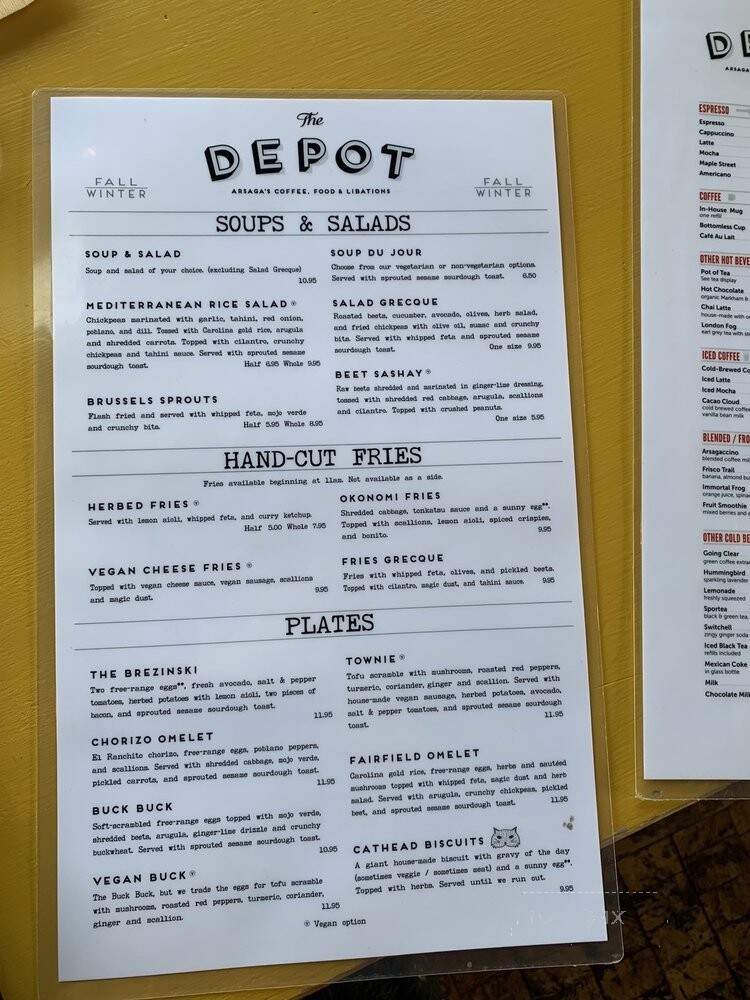 The
DEPOT
ARSAGA'S COFFEE, FOOD & LIBATIONS
FALL
WINTER
FALL
WINTER
SOUPS & SALADS
SOUP & SALAD
Soup and salad of your choice. (excluding Salad Grecque)
10.95
MEDITERRANEAN RICE SALAD ⓥ
Chickpeas marinated with garlic, tahini, red onion,
poblano, and dill. Tossed with Carolina gold rice, arugula
and shredded carrots. Topped with cilantro, crunchy
chickpeas and tahini sauce. Served with sprouted sesame
sourdough toast. Half 6.95 Whole 9.95
BRUSSELS SPROUTS
Flash fried and served with whipped feta, mojo verde
and crunchy bits. Half 5.95 Whole 8.95
SOUP DU JOUR
Choose from our vegetarian or non-vegetarian options.
Served with sprouted sesame sourdough toast. 6.50
SALAD GRECQUE
Roasted beets, cucumber, avocado, olives, herb salad,
and fried chickpeas with olive oil, sumac and crunchy
bits. Served with whipped feta and sprouted sesame
sourdough toast. One size 9.95
BEET SASHAY ⓥ
Raw beets shredded and marinated in ginger-lime dressing,
tossed with shredded red cabbage, arugula, scallions
and cilantro. Topped with crushed peanuts.
One size 5.95
HAND-CUT FRIES
Fries available beginning at 11am. Not available as a side.
HERBED FRIES ⓥ
Served with lemon aioli, whipped feta, and curry ketchup.
Half 5.00 Whole 7.95
VEGAN CHEESE FRIES ⓥ
Topped with vegan cheese sauce, vegan sausage, scallions
and magic dust. 9.95
OKONOMI FRIES
Shredded cabbage, tonkatsu sauce and a sunny egg**.
Topped with scallions, lemon aioli, spiced crispies,
and bonito. 9.95
FRIES GRECQUE
Fries with whipped feta, olives, and pickled beets.
Topped with cilantro, magic dust, and tahini sauce. 9.95
PLATES
THE BREZINSKI
Two free-range eggs**, fresh avocado, salt & pepper
tomatoes, herbed potatoes with lemon aioli, two pieces of
bacon, and sprouted sesame sourdough toast.
11.95
CHORIZO OMELET
El Ranchito chorizo, free-range eggs, poblano peppers,
and scallions. Served with shredded cabbage, mojo verde,
pickled carrots, and sprouted sesame sourdough toast.
11.95
BUCK BUCK
Soft-scrambled free-range eggs topped with mojo verde,
shredded beets, arugula, ginger-lime drizzle and crunchy
buckwheat. Served with sprouted sesame sourdough toast.
10.95
VEGAN BUCK ⓥ
The Buck Buck, but we trade the eggs for tofu scramble
with mushrooms, roasted red peppers, turmeric, coriander,
ginger and scallion. 11.95
TOWNIE ⓥ
Tofu scramble with mushrooms, roasted red peppers,
turmeric, coriander, ginger and scallion. Served with
house-made vegan sausage, herbed potatoes, avocado,
salt & pepper tomatoes, and sprouted sesame sourdough
toast. 11.95
FAIRFIELD OMELET
Carolina gold rice, free-range eggs, herbs and sautéed
mushrooms topped with whipped feta, magic dust and herb
salad. Served with arugula, crunchy chickpeas, pickled
beet, and sprouted sesame sourdough toast. 11.95
CATHEAD BISCUITS
A giant house-made biscuit with gravy of the day
(sometimes veggie / sometimes meat) and a sunny egg**.
Topped with herbs. Served until we run out.
9.95
ⓥ Vegan option
ESPRESSO
Espresso
Cappuccino
Latte
Mocha
Maple Street
Americano
COFFEE
In-House Mug
one refill
Bottomless Cup
Café Au Lait
OTHER HOT
Pot of Tea
See tea display
Hot Chocolate
organic Markham &
Chai Latte
house-made with
London Fog
earl grey tea with
ICED COFFEE
Cold-Brewed
Iced Latte
Iced Mocha
Cacao Cloud
cold brewed
vanilla bean milk
BLENDED /
Arsagaccino
blended coffee
Frisco Trail
banana, almond
Immortal Frog
orange juice,
Fruit Smoothie
mixed berries and
OTHER COLD
Going Clear
green coffee
Hummingbird
sparkling lavender
Lemonade
freshly squeezed
Sportea
black & green tea,
Switchell
zingy ginger soda
Iced Black Tea
refills included
Mexican Coke
in glass bottle
Milk
Chocolate